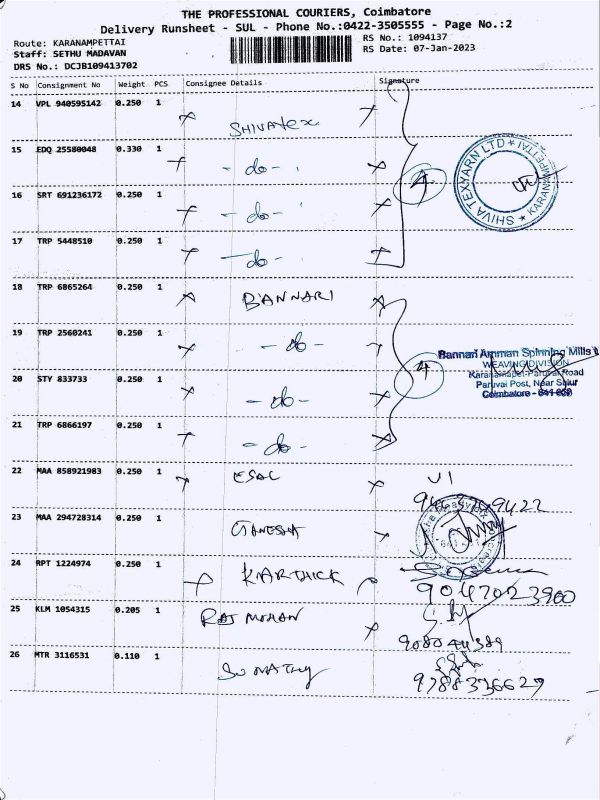 THE PROFESSIONAL COURIERS, Coimbatore
Delivery Runsheet - SUL - Phone No.:0422-3505555 - Page No.:2
Route: KARANAMPETTAI
Staff: SETHU MADAVAN
DRS No.: DCJB109413702
RS No.: 1094137
RS Date: 07-Jan-2023
S No Consignment No Weight PCS Consignee Details Signature
14 VPL 940595142 0.250 1 SHIVATEX
15 EDQ 25580048 0.330 1 - do -
16 SRT 691236172 0.250 1 - do -
17 TRP 5448510 0.250 1 - do -
4
SHIVA TEXYARN LTD ★ KARANAMPETTAI ★
18 TRP 6865264 0.250 1 BANNARI
19 TRP 2560241 0.250 1 - do -
20 STY 833733 0.250 1 - do -
21 TRP 6866197 0.250 1 - do -
4
Bannari Amman Spinning Mills
WEAVING DIVISION
Road
Paruvai Post, Near Sulur
Coimbatore -
22 MAA 858921983 0.250 1 ESAC
23 MAA 294728314 0.250 1 GANESHA
24 RPT 1224974 0.250 1 KARTHICK
9047023900
25 KLM 1054315 0.205 1 RAJ MOHAN
26 MTR 3116531 0.110 1 SUMATHY
9788336627